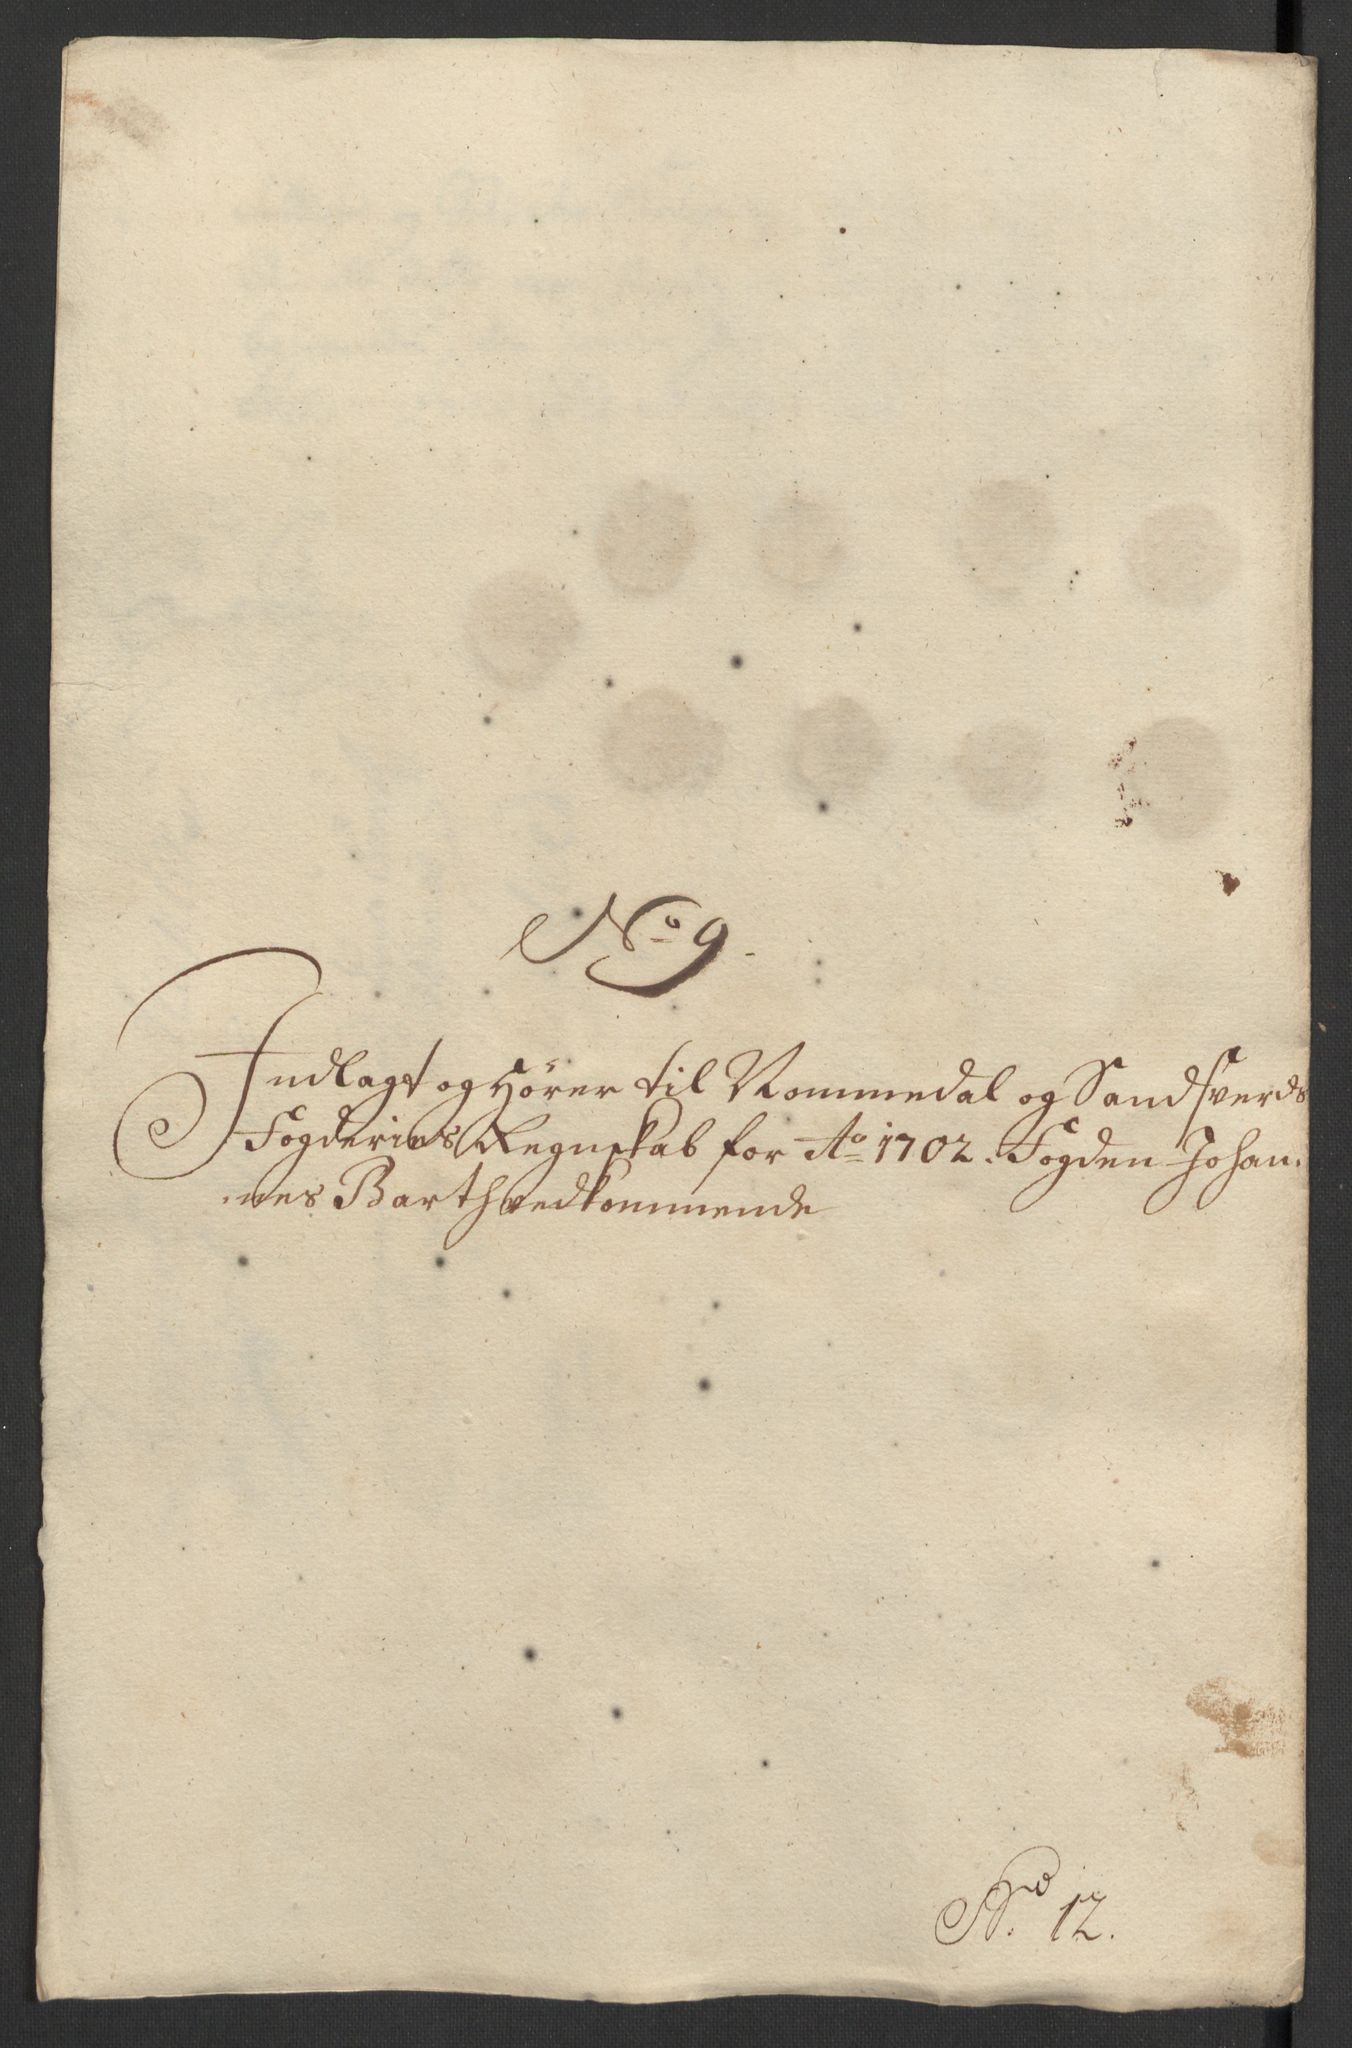 No 9.
Indlagt og Hörer til Nommedal og Sandsverds
Fogderies Regnskab for Ao 1702. Fogden Johan-
nes Barth vedkommende
No 12.